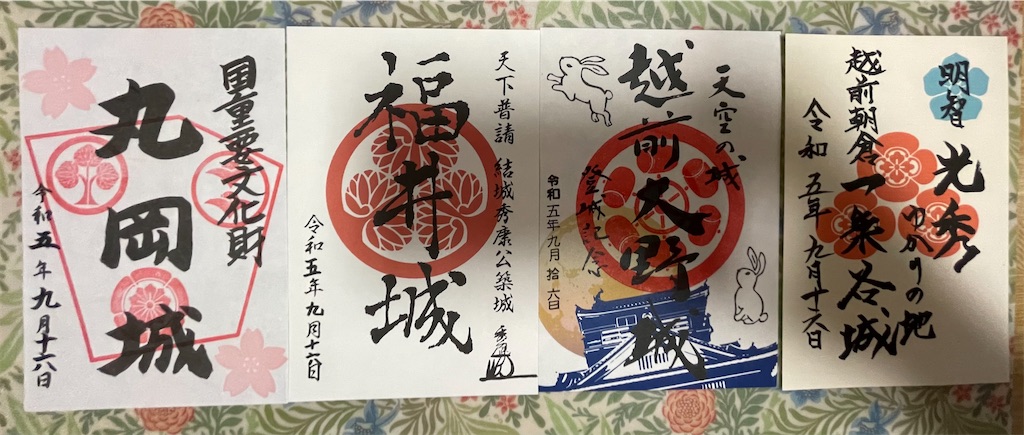 国重要文化財
丸岡城
令和五年九月十六日
天下普請 結城秀康公築城
福井城
令和五年九月十六日
天空の城
越前大野城
登城記念
令和五年九月拾六日
明智光秀
ゆかりの地
越前朝倉一乗谷城
令和五年九月十六日